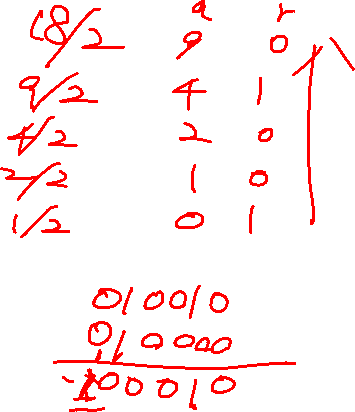 q r
18/2 9 0
9/2 4 1
4/2 2 0
2/2 1 0
1/2 0 1
010010
010000
100010